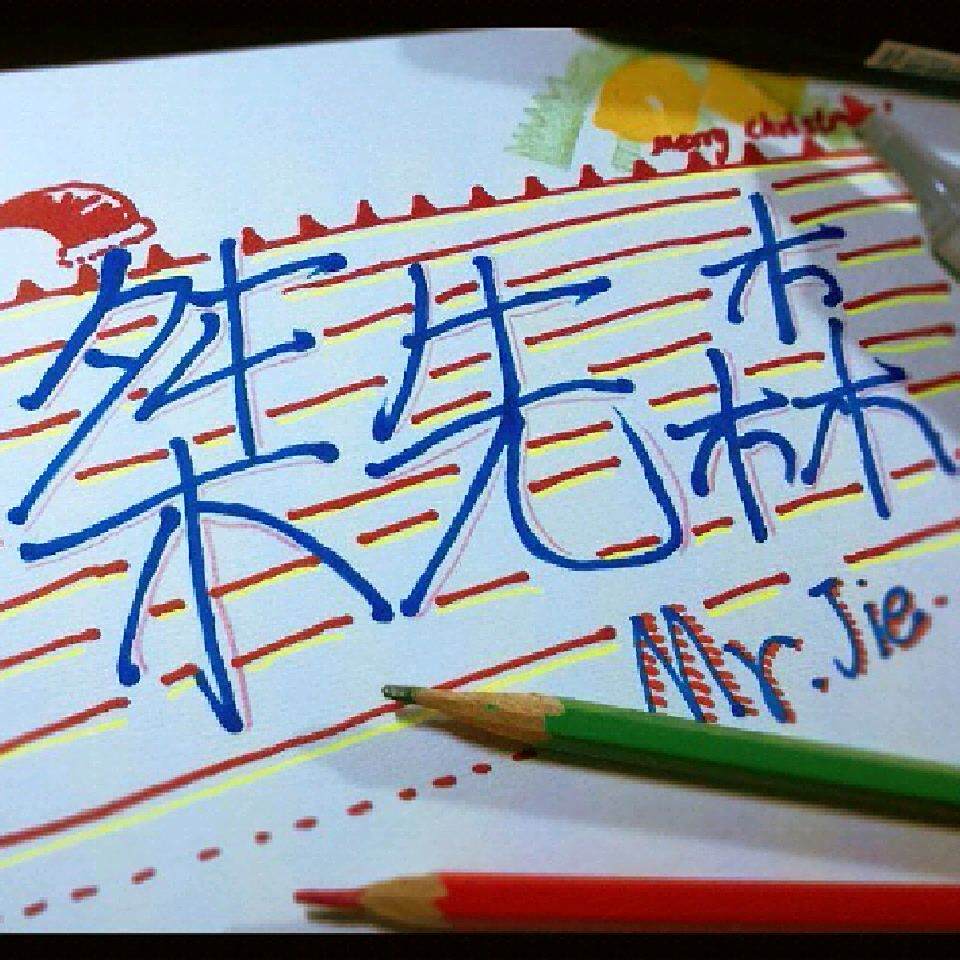 merry christm
桀先森
Mr. Jie.